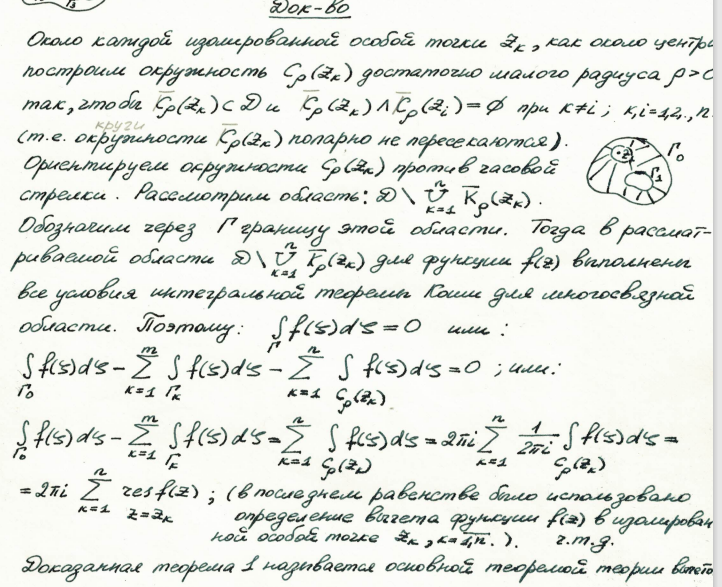 Док-во
Около каждой изолированной особой точки z_k, как около центр
построим окружность C_ρ(z_k) достаточно малого радиуса ρ>0
так, чтобы K̅_ρ(z_k) ⊂ D и K̅_ρ(z_k) ∧ K̅_ρ(z_i) = ∅ при k≠i ; k,i=1,2.,n.
круги
(т.е. окружности K̅_ρ(z_k) попарно не пересекаются).
Ориентируем окружности C_ρ(z_k) против часовой
Γ₀ z Γ₁
стрелки. Рассмотрим область: D \ ∪_{k=1}^{n} K̅_ρ(z_k).
Обозначим через Γ границу этой области. Тогда в рассмат-
риваемой области D \ ∪_{k=1}^{n} K̅_ρ(z_k) для функции f(z) выполнены
все условия интегральной теоремы Коши для многосвязной
области. Поэтому: ∫_Γ f(ζ)dζ = 0 или :
∫_{Γ₀} f(ζ)dζ − ∑_{k=1}^{m} ∫_{Γ_k} f(ζ)dζ − ∑_{k=1}^{n} ∫_{C_ρ(z_k)} f(ζ)dζ = 0 ; или:
∫_{Γ₀} f(ζ)dζ − ∑_{k=1}^{m} ∫_{Γ_k} f(ζ)dζ = ∑_{k=1}^{n} ∫_{C_ρ(z_k)} f(ζ)dζ = 2πi ∑_{k=1}^{n} 1/2πi ∫_{C_ρ(z_k)} f(ζ)dζ =
= 2πi ∑_{k=1}^{n} res_{z=z_k} f(z) ; (в последнем равенстве было использовано
определение вычета функции f(z) в изолирован
ной особой точке z_k, k=1,n. ). ч.т.д.
Доказанная теорема 1 называется основной теоремой теории вычето